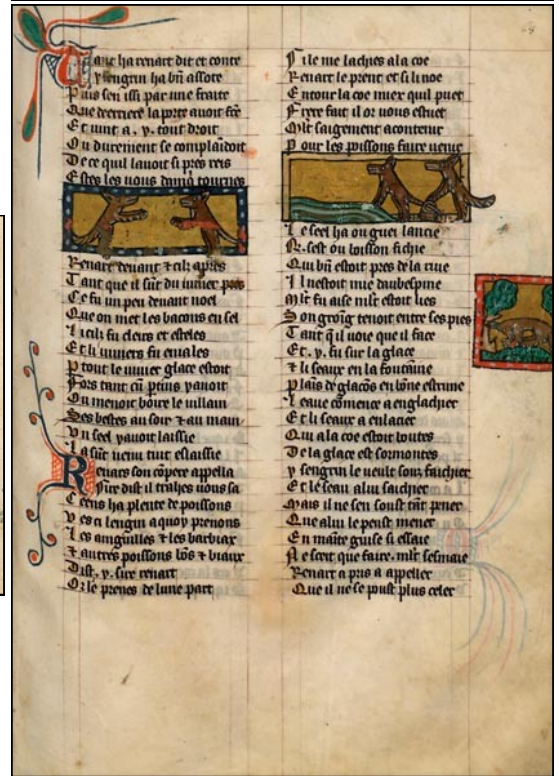 Tant ha renart dit et conte
Ysengrin ha bñ assote
Puis sen issi par une fraite
Que derrierre la porte auoit fete
Et uint a .y. tout droit
Ou durement se complaidoit
De ce quil lauoit si pres reis
Renart deuant ⁊ cil apres
Tant que il sūt du uiuier pres
Ce fu un peu deuant noel
Que on met les bacons en sel
Li ciel fu clers et esteles
Et li uiuiers fu
P tout le uiuier glace estoit
Fors tant cū ptuis yauoit
Ou menoit boire le uillain
Ses bestes au soir ⁊ au main
Un seel yauoit laissie
La sūt uenu tuit eslaissie
Renars son cōpere appella
Sire dist il trahes uous sa
Ceens ha plente de poissons
Ves ci lengin a quoy prenons
Les anguilles ⁊ les barbiax
⁊ autres poissons bōs ⁊ biaux
Dist .y. sire renart
Or le prenes de lune part
Si le me laches a la coe
Renart le prent et si li noe
Entour la coe miex quil puet
Frere fait il or uous estuet
Mlt saigement a contenir
Pour les poissons faire uenir
Le seel ha ou guer lancie
.R. sest ou buisson fichie
Qui bñ estoit pres de la riue
Il nestoit mie daubespine
Mlt fu aise mlt estoit lies
Son groig tenoit entre ses pies
Tant q̄ il uoie que il face
Et .y. fu sur la glace
⁊ li seaux en la fontaine
Plais de glacōs en bōne estrune
Leaue cōmence a englachier
Et li seaux a enlacier
Qui a la coe estoit
De la glace est sormontes
ysengrin le ueult souz faichier
Et le seau a lui saichier
Mais il ne sen soust tāt pener
Que a lui le peust mener
En maite guise si essaie
Ne sceit que faire mlt sesmaie
Renart a pris a appeller
Que il ne se poust plus celer